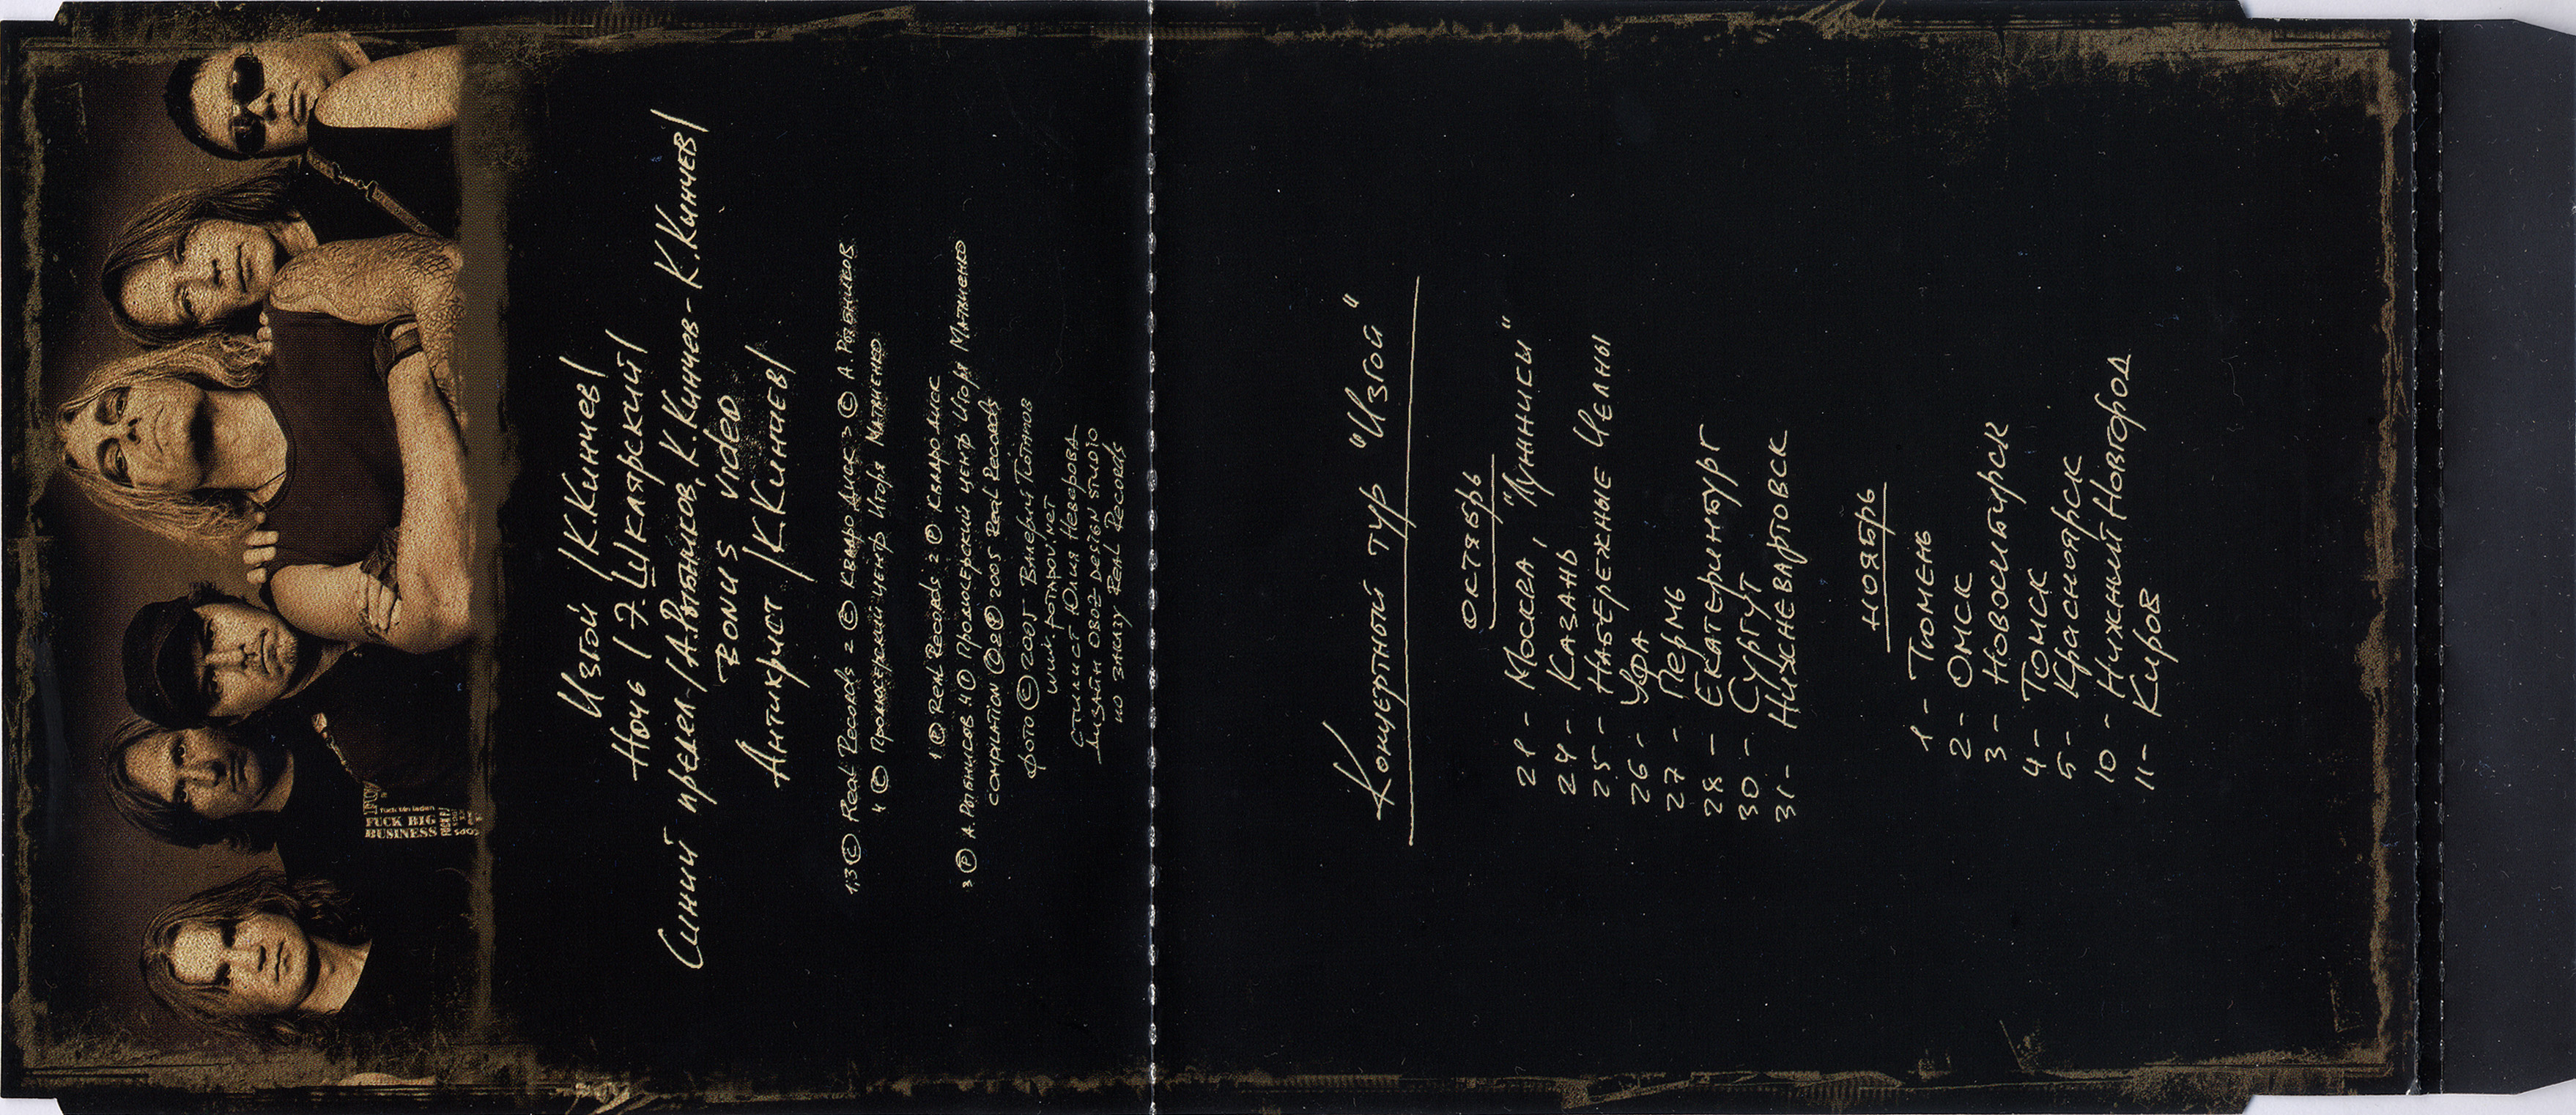 Fuck bin laden
FUCK BIG
BUSINESS
Изгой /К.Кинчев/
Ночь /Э.Шклярский/
Синий предел /А.Рыбников, К.Кинчев - К.Кинчев/
Bonus video
Антихрист /К.Кинчев/
1,3 © Real Records 2 © Квадро Диск 3 © А. Рыбников
4 © Продюсерский центр Игоря Матвиенко
1 ℗ Real Records 2 ℗ Квадро Диск
3 ℗ А. Рыбников 4 ℗ Продюсерский центр Игоря Матвиенко
compilation © & ℗ 2005 Real Records
Фото © 2005 Валерий Потапов
Стилист Юлия Неверова
Дизайн OBOZ DESIGN STUDIO
по заказу Real Records
Концертный тур "Изгой"
октябрь
21 - Москва, "Лужники"
24 - Казань
25 - Набережные Челны
26 - Уфа
27 - Пермь
28 - Екатеринбург
30 - Сургут
31 - Нижневартовск
ноябрь
1 - Тюмень
2 - Омск
3 - Новосибирск
4 - Томск
5 - Красноярск
10 - Нижний Новгород
11 - Киров